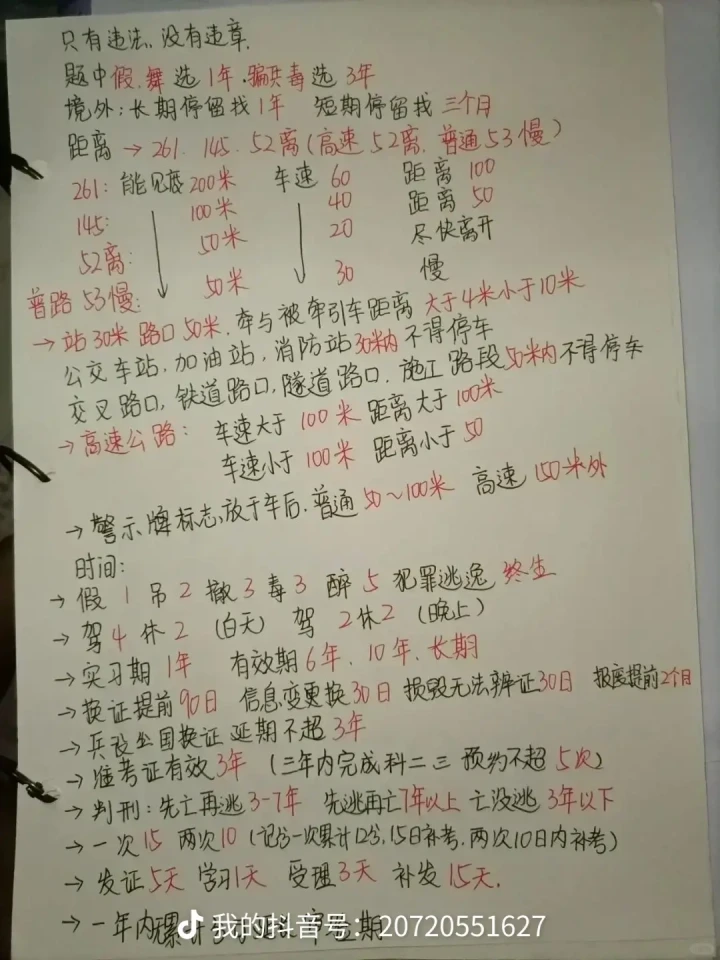 只有违法,没有违章.
题中假.舞选1年.骗失毒选3年
境外:长期停留找1年 短期停留找三个月
距离→261.145.52离(高速52离.普通53慢)
261:能见度200米 车速60 距离100
145: 100米 40 距离50
52离: 50米 20 尽快离开
普路53慢: 50米 30 慢
→站30米路口50米.牵与被牵引车距离大于4米小于10米
公交车站.加油站.消防站30米内不得停车
交叉路口,铁道路口,隧道路口.施工路段50米内不得停车
→高速公路:车速大于100米距离大于100米
车速小于100米 距离小于50
→警示牌标志放于车后.普通50~100米 高速150米外
时间:
→假1吊2撤3毒3醉5犯罪逃逸终生
→驾4休2(白天)驾2休2(晚上)
→实习期1年 有效期6年.10年.长期
→换证提前90日 信息变更换30日 损毁无法辨证30日 报废提前2个月
→兵役出国换证延期不超3年
→准考证有效3年(三年内完成科二三 预约不超5次)
→判刑:先亡再逃3-7年 先逃再亡7年以上 亡没逃3年以下
→一次15 两次10(记分一次累计12分,15日补考.两次10日内补考)
→发证5天 学习1天 受理3天 补发15天.
→一年内累计
我的抖音号:20720551627